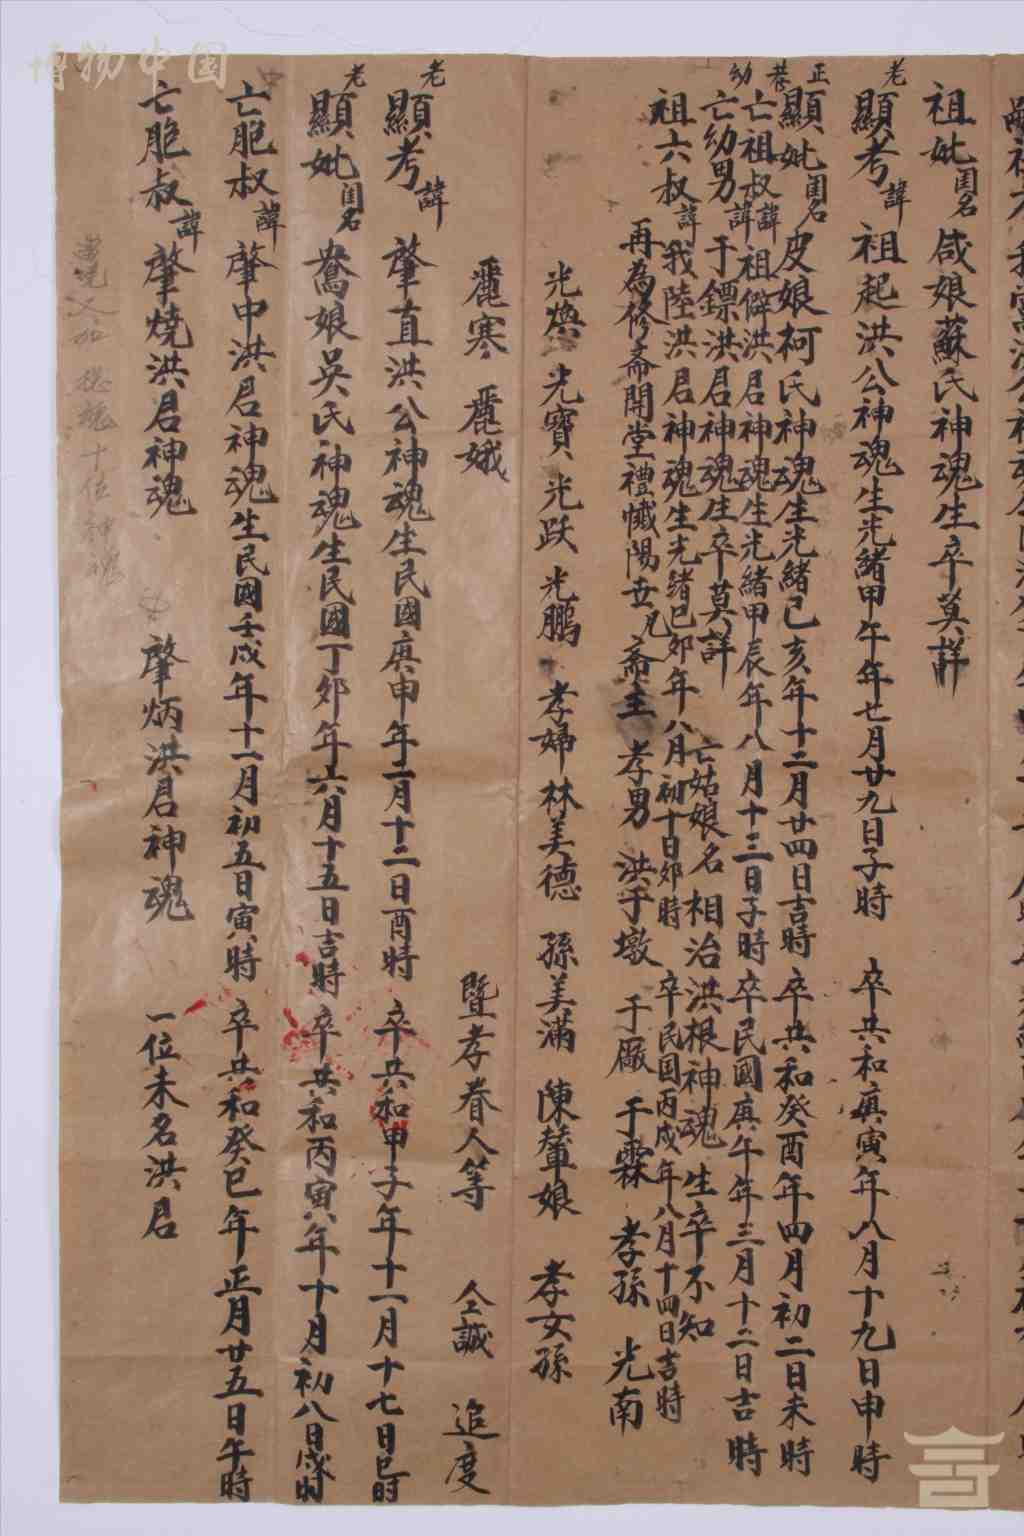 博物中国
祖妣閨名咸娘蘇氏神魂生卒莫詳
老顯考諱祖起洪公神魂生光緒甲午年七月廿九日子時 卒共和庚寅年八月十九日申時
正顯妣閨名皮娘柯氏神魂生光緒己亥年十二月廿四日吉時 卒共和癸酉年四月初二日未時
亡祖叔諱祖僻洪君神魂生光緒甲辰年八月十三日子時 卒民國庚午年三月十二日吉時
幼亡幼男諱于鏢洪君神魂生卒莫詳 亡姑娘名相治洪根神魂 生卒不知
祖六叔諱我陸洪君神魂生光緒己卯年八月初十日卯時 卒民国丙戌年八月十四日吉時
再為修斋開堂禮懺陽世 斋主 孝男 洪于墩 于廠 于霖 孝孫 光南
光煥 光寶 光跃 光鵬 孝婦 林美德 孫美滿 陳輦娘 孝女孫
麗寒 麗娥 暨孝眷人等 仝誠 追度
老顯考諱肇直洪公神魂生民國庚申年二月十二日酉時 卒共和甲子年十一月十七日巳时
老顯妣閨名鴦娘吳氏神魂生民國丁卯年六月十五日吉時 卒共和丙寅年十月初八日戌時
亡胞叔諱肇中洪君神魂生民國壬戌年十一月初五日寅時 卒共和癸巳年正月廿五日午時
亡胞叔諱肇燒洪君神魂 肇炳洪君神魂 一位未名洪君
十位神魂